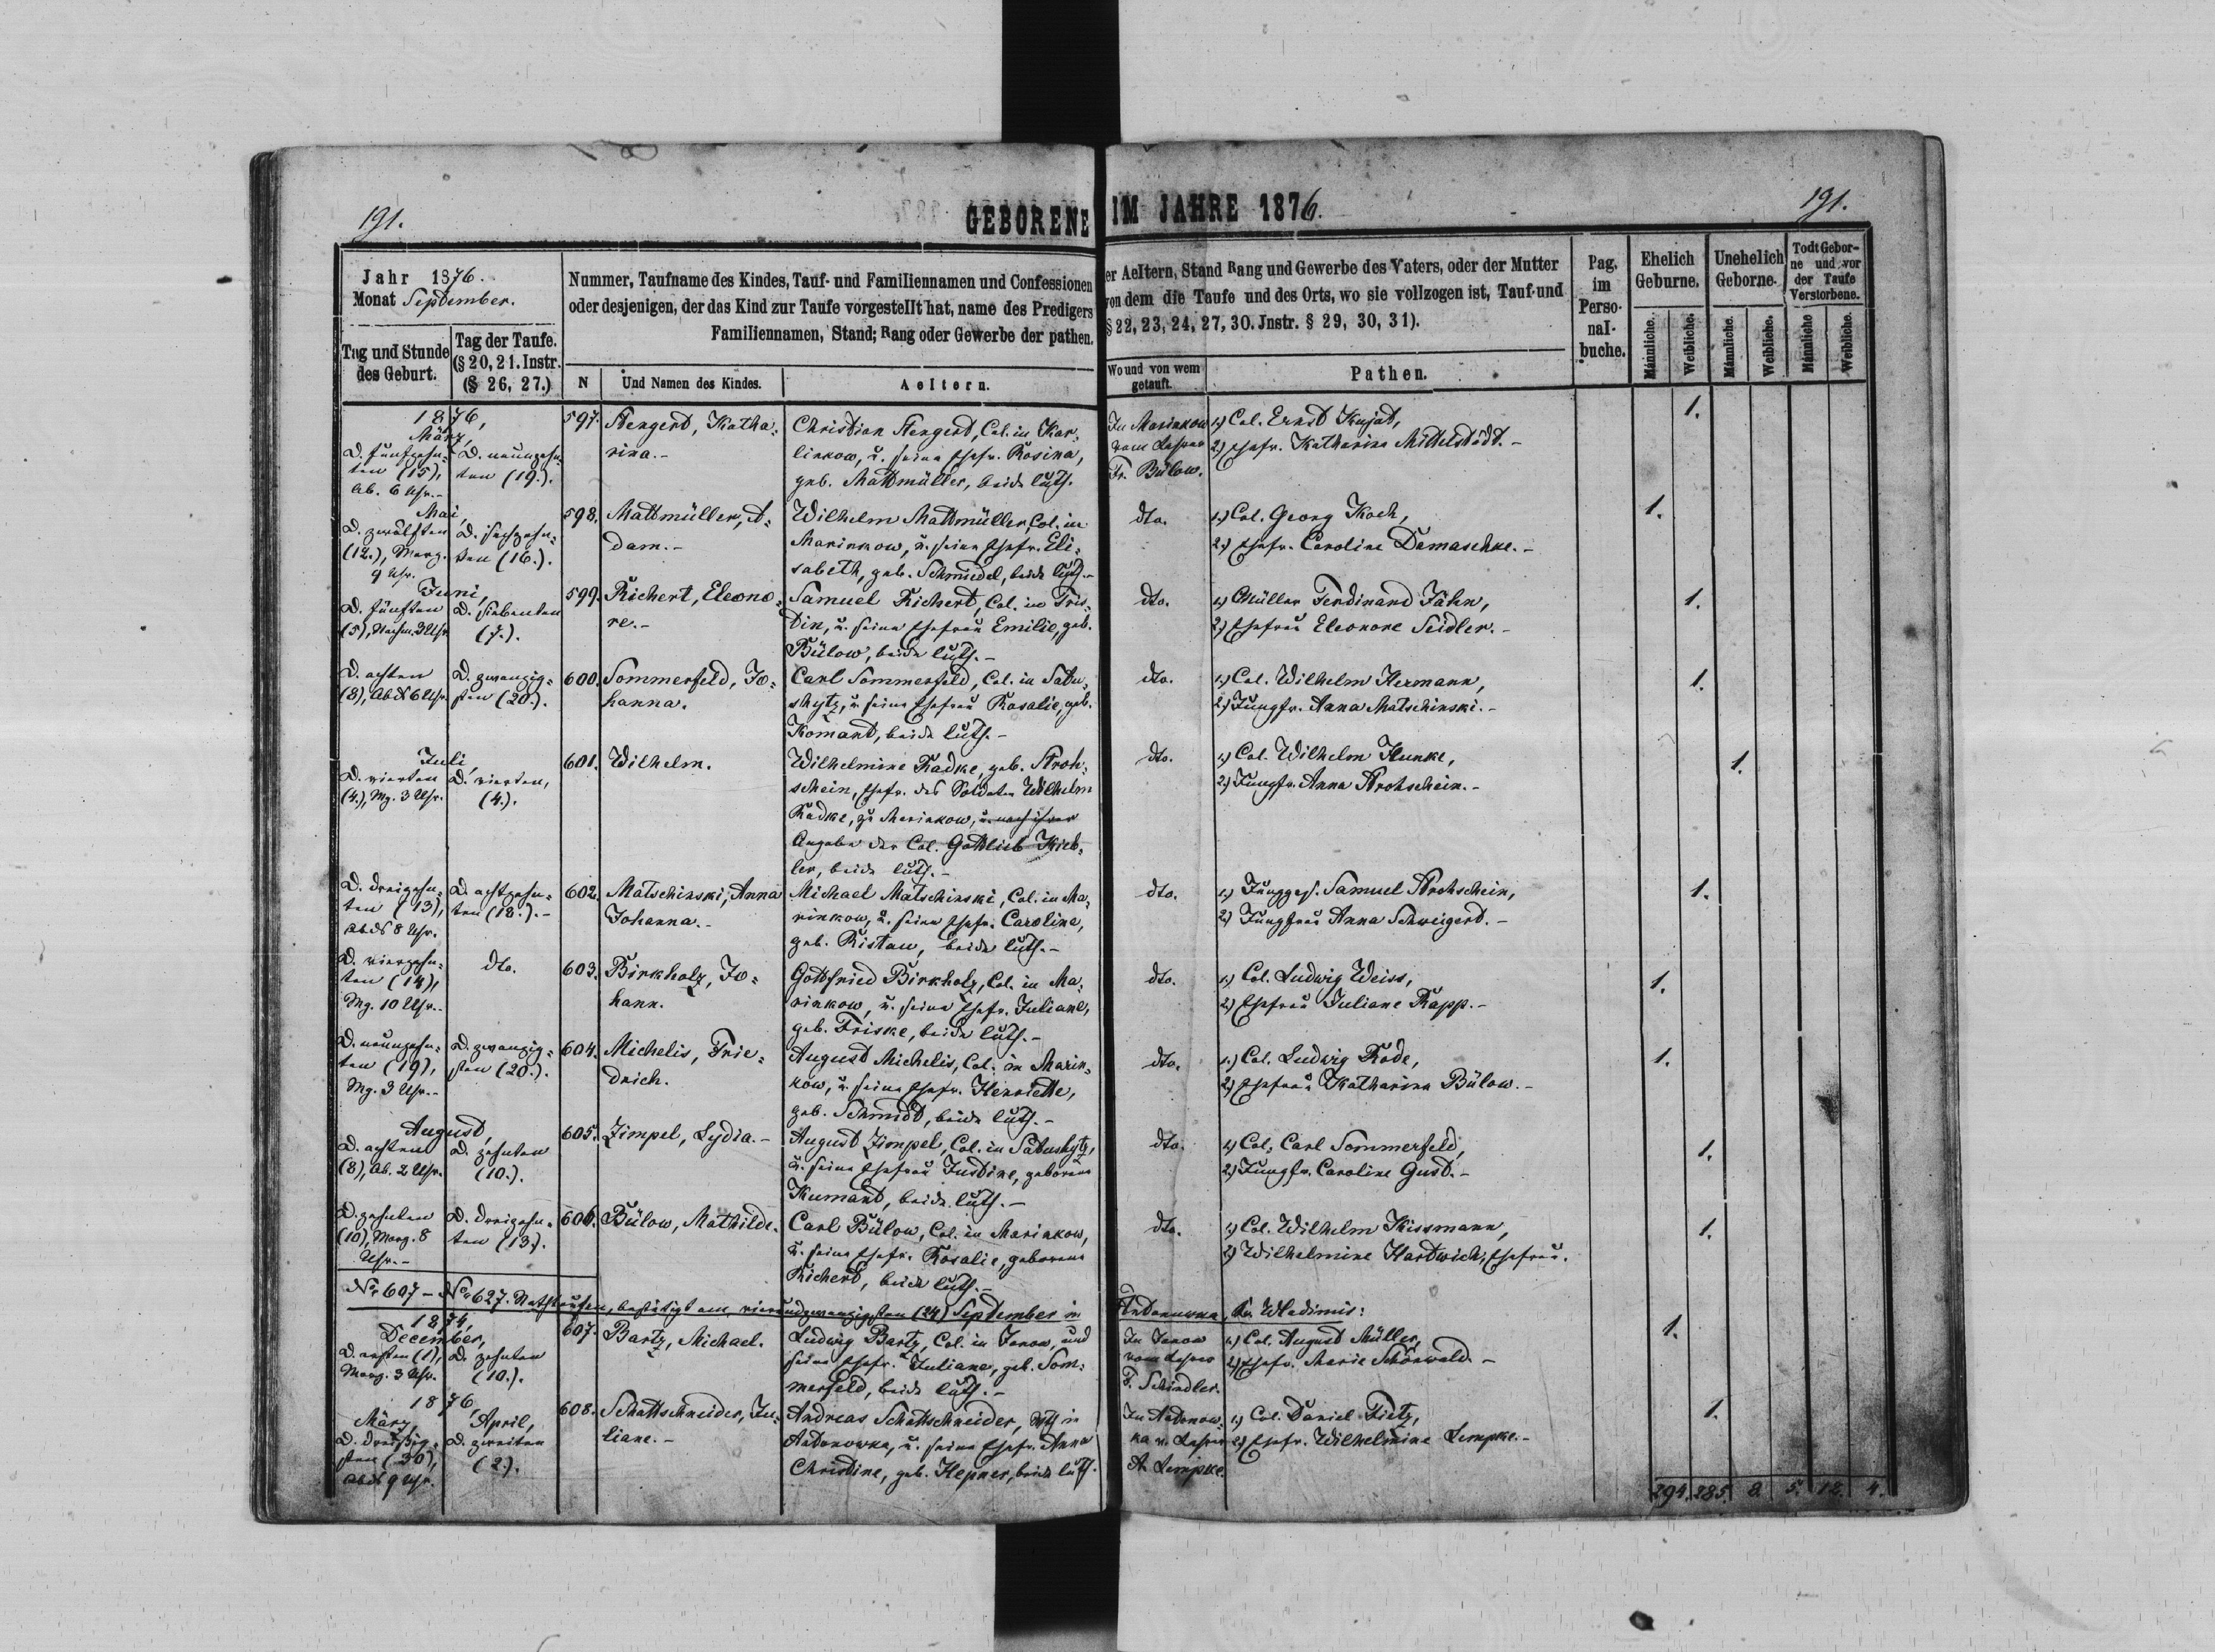 191.
GEBORENE IM JAHRE 1876.
191.
Jahr 1876.
Monat September.
Tag und Stunde des Geburt.
Tag der Taufe.
(§ 20, 21. Instr.
(§ 26, 27.)
Nummer, Taufname des Kindes, Tauf- und Familiennamen und Confessionen
oder desjenigen, der das Kind zur Taufe vorgestellt hat, name des Predigers
Familiennamen, Stand; Rang oder Gewerbe der pathen.
N
Und Namen des Kindes.
Aeltern.
er Aeltern, Stand Rang und Gewerbe des Vaters, oder der Mutter
von dem die Taufe und des Orts, wo sie vollzogen ist, Tauf-und
§ 22, 23, 24, 27, 30. Jnstr. § 29, 30, 31).
Wo und von wem
getauft.
Pathen.
Pag.
im
Perso-
nal-
buche.
Ehelich
Geburne.
Unehelich
Geborne.
Todt Gebor-
ne und vor
der Taufe
Verstorbene.
Männliche.
Weibliche.
Männliche.
Weibliche.
Männliche
Weibliche.
1876,
März,
D. fünfzehn-
ten (15),
Ab. 6 Uhr.-
D. neunzehn-
ten (19.).
597.
Stengert, Katha-
rina.-
Christian Stengert, Col. in Kar-
linkow, u. seine Ehefr. Rosina,
geb. Mattmüller, beide luth.
In Marinkow
vom
Fr. Bülow.
1.) Col. Ernst Kujat,
2.) Ehefr. Katharina Mittelstädt.-
1.
Mai,
D. zwölften
(12.), Morg.
9 Uhr.
D. sechzehn-
ten (16.).
598.
Mattmüller, A-
dam.-
Wilhelm Mattmüller, Col. in
Marinkow, u. seine Ehefr. Eli-
sabeth, geb. Schmiedel, beide luth.-
dto.
1.) Col. Georg Koch,
2.) Ehefr. Caroline Damaschke.-
1.
Juni,
D. fünften
(5), Nachm. 3 Uhr
D. siebenten
(7.).
599.
Richert, Eleono-
re.-
Samuel Richert, Col. in Tris-
tin, u. seine Ehefrau Emilie, geb.
Bülow, beide luth.-
dto.
1.) Müller Ferdinand Jähn,
2.) Ehefrau Eleonore Seidler.-
1.
D. achten
(8), Abds 6 Uhr
D. zwanzig-
sten (20.).
600.
Sommerfeld, Jo-
hanna.
Carl Sommerfeld, Col. in Satu-
shytz, u. seine Ehefrau Rosalie, geb.
Komant, beide luth.-
dto.
1.) Col. Wilhelm Hermann,
2.) Jungfr. Anna Matschinski.-
1.
Juli,
D. vierten
(4.), Mg. 3 Uhr.
D. vierten,
(4.).
601.
Wilhelm.
Wilhelmine Radke, geb. Stroh-
schein, Ehefr. des Soldaten Wilhelm
Radke, zu Marinkow, u. nach ihrer
Angabe der Col. Gottlieb
ler, beide luth.-
dto.
1.) Col. Wilhelm Hunke,
2.) Jungfr. Anna Strohschein.-
1.
D. dreizehn-
ten (13),
Abds 8 Uhr.
D. achtzehn-
ten (18.).-
602.
Matschinski, Anna
Johanna.-
Michael Matschinski, Col. in Ma-
rinkow, u. seine Ehefr. Caroline,
geb. Ristau, beide luth.-
dto.
1.) Jungges. Samuel Strohschein,
2.) Jungfrau Anna Schweigert.-
1.
D. vierzehn-
ten (14),
Mg. 10 Uhr.-
dto.
603.
Birkholz, Jo-
hann.
Gottfried Birkholz, Col. in Ma-
rinkow, u. seine Ehefr. Juliane,
geb. Friske, beide luth.-
dto.
1.) Col. Ludwig Weiss,
2.) Ehefrau Juliane Rapp.-
1.
D. neunzehn-
ten (19),
Mg. 3 Uhr.-
D. zwanzig-
sten (20.).
604.
Michelis, Frie-
drich.
August Michelis, Col. in Marin-
kow, u. seine Ehefr. Henriette,
geb. Schmidt, beide luth.-
dto.
1.) Col. Ludwig Rode,
2.) Ehefrau Katharina Bülow.-
1.
August,
D. achten
(8), Ab. 2 Uhr.
D. zehnten
(10.).
605.
Zimpel, Lydia.-
August Zimpel, Col. in Satushytz,
u. seine Ehefrau Justine, geborene
Kumant, beide luth.-
dto.
1.) Col. Carl Sommerfeld,
2.) Jungfr. Caroline Gust.-
1.
D. zehnten
(10), Morg. 8
Uhr.-
D. dreizehn-
ten (13.).
606.
Bülow, Mathilde.
Carl Bülow, Col. in Marinkow,
u. seine Ehefr. Rosalie, geborene
Richert, beide luth.-
dto.
1.) Col. Wilhelm Kissmann,
2.) Wilhelmine Hartwich, Ehefrau.
1.
No 607 - No 627. Nothtaufen, bestätigt am vierundzwanzigsten (24) September in Antonowka, Kr. Wladimir:
1874,
December,
D. ersten (1),
Morg. 3 Uhr.
D. zehnten
(10.).
607.
Bartz, Michael.
Ludwig Bartz, Col. in Janow, und
seine Ehefr. Juliane, geb. Som-
merfeld, beide luth.-
In Janow
vom
F. Schindler.
1.) Col. August Müller,
2.) Ehefr. Marie Schönwald.-
1.
1876,
März,
D. dreißig-
sten (30),
Abds 9 Uhr.
April,
D. zweiten
(2.).
608.
Schattschneider, Ju-
liane.-
Andreas Schattschneider, in
Antonowka, u. seine Ehefr. Anna
Christine, geb. Hepner, beide luth.
In Antonow-
ka v.
A. Lempke.
1.) Col. Daniel Tietz,
2.) Ehefr. Wilhelmine Lempke.-
1.
294. 285. 8. 5. 12. 4.